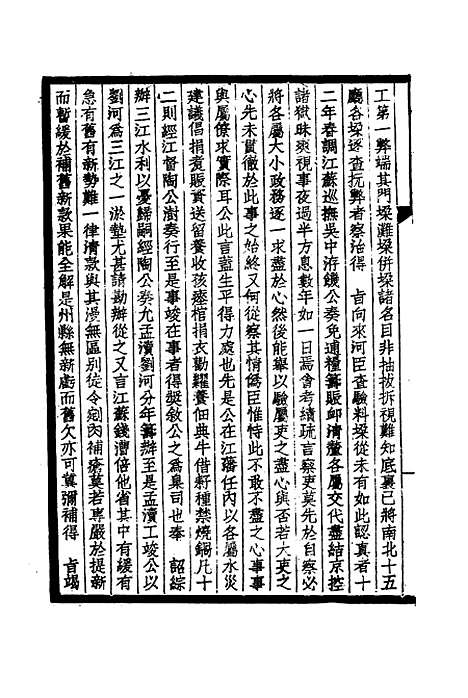 工第一弊端其門垜灘垜併垜諸名目非抽拔拆視難知底裏已將南北十五
廳各垜逐查抚弊者察治得　旨向來河臣查驗料垜從未有如此認真者十
二年春調江蘇巡撫吳中洊饑公奏免逋糧籌賑卹清釐各屬交代盡結京控
諸獄昧爽視事夜過半方息數年如一日焉會考績疏言察吏莫先於自察必
將各屬大小政務逐一求盡於心然後能舉以驗屬吏之盡心與否若大吏之
心先未貫徹於此事之始終又何從察其情僞臣惟恃此不敢不盡之心事事
與屬僚求實際耳公此言蓋生平得力處也先是公在江藩任內以各屬水災
建議倡捐煑賑資送留養收孩瘞棺捐衣勸糶養佃典牛借籽種禁燒鍋凡十
二則經江督陶公澍奏行至是事竣在事者得奬敘公之為臬司也奉　詔綜
辦三江水利以憂歸嗣經陶公奏允孟瀆劉河分年籌辦至是孟瀆工竣公以
劉河為三江之一淤墊尤甚請勘辦從之又言江蘇錢漕倍他省其中有緩有
急有舊有新勢難一律清款與其漫無區別徒令剜肉補瘡莫若專嚴於提新
而暫緩於補舊新款果能全解是州縣無新虧而舊欠亦可冀彌補得　旨竭